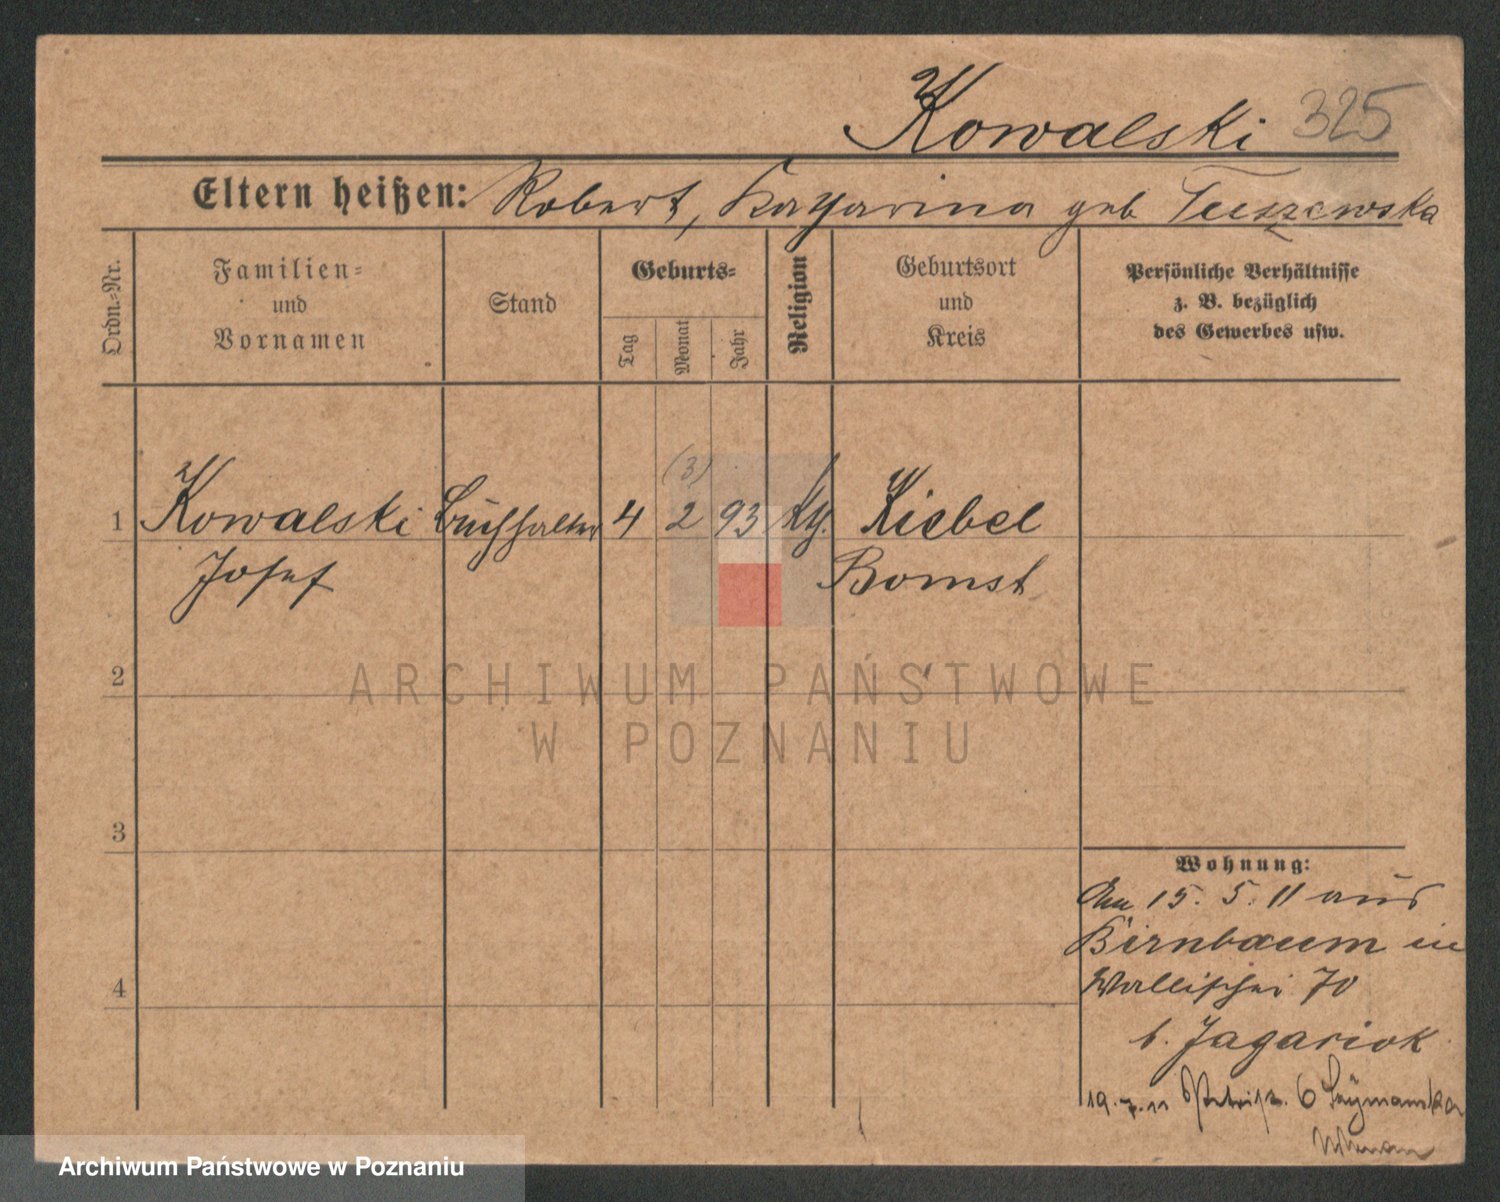 Kowalski 325
Eltern heißen: Robert, Katarina geb Tuszewska
Ordn.-Nr.
Familien-
und
Vornamen
Stand
Geburts-
Tag
Monat
Jahr
Religion
Geburtsort
und
Kreis
Persönliche Verhältnisse
z. B. bezüglich
des Gewerbes usw.
(3)
1 Kowalski Buchhalter 4 2 93 Kiebel
Josef Bomst
ARCHIWUM PAŃSTWOWE
W POZNANIU
2
3
4
Wohnung:
Am 15. 5. 11 aus
Birnbaum in
Wallischei 70
b. Jagariok
19. 7. 11 6
Archiwum Państwowe w Poznaniu